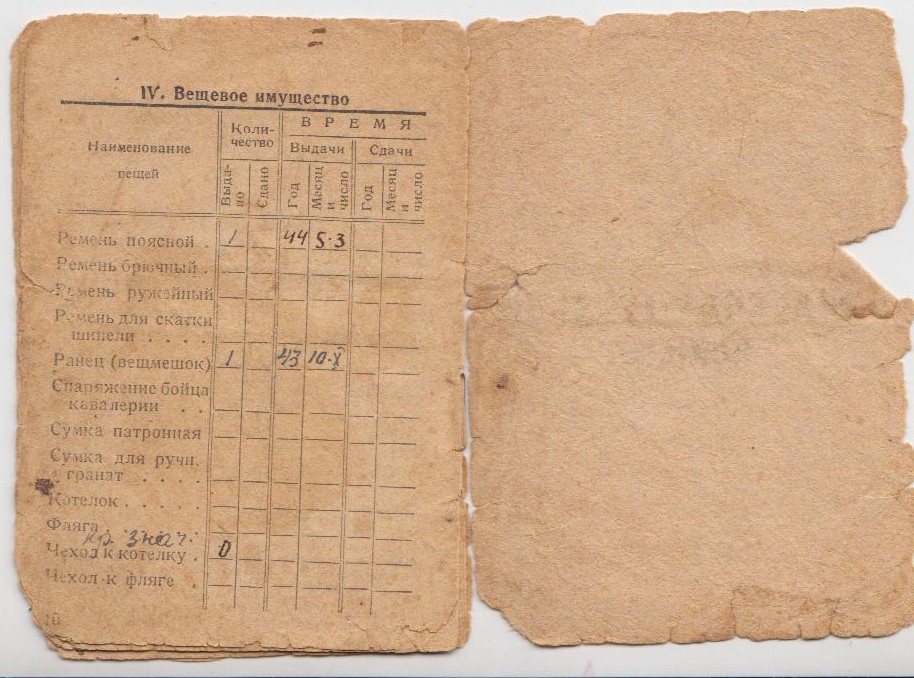 IV. Вещевое имущество
Наименование вещей
Количество
ВРЕМЯ
Выдачи
Сдачи
Выдано
Сдано
Год
Месяц и число
Год
Месяц и число
Ремень поясной . 1 44 5·3
Ремень брючный .
Ремень ружейный
Ремень для скатки
шинели . . . .
Ранец (вещмешок) 1 43 10·X
Снаряжение бойца
кавалерии . .
Сумка патронная
Сумка для ручн.
гранат . . . .
Котелок . . . . .
Фляга .
кр. знач.
Чехол к котелку . 0
Чехол к фляге .
10